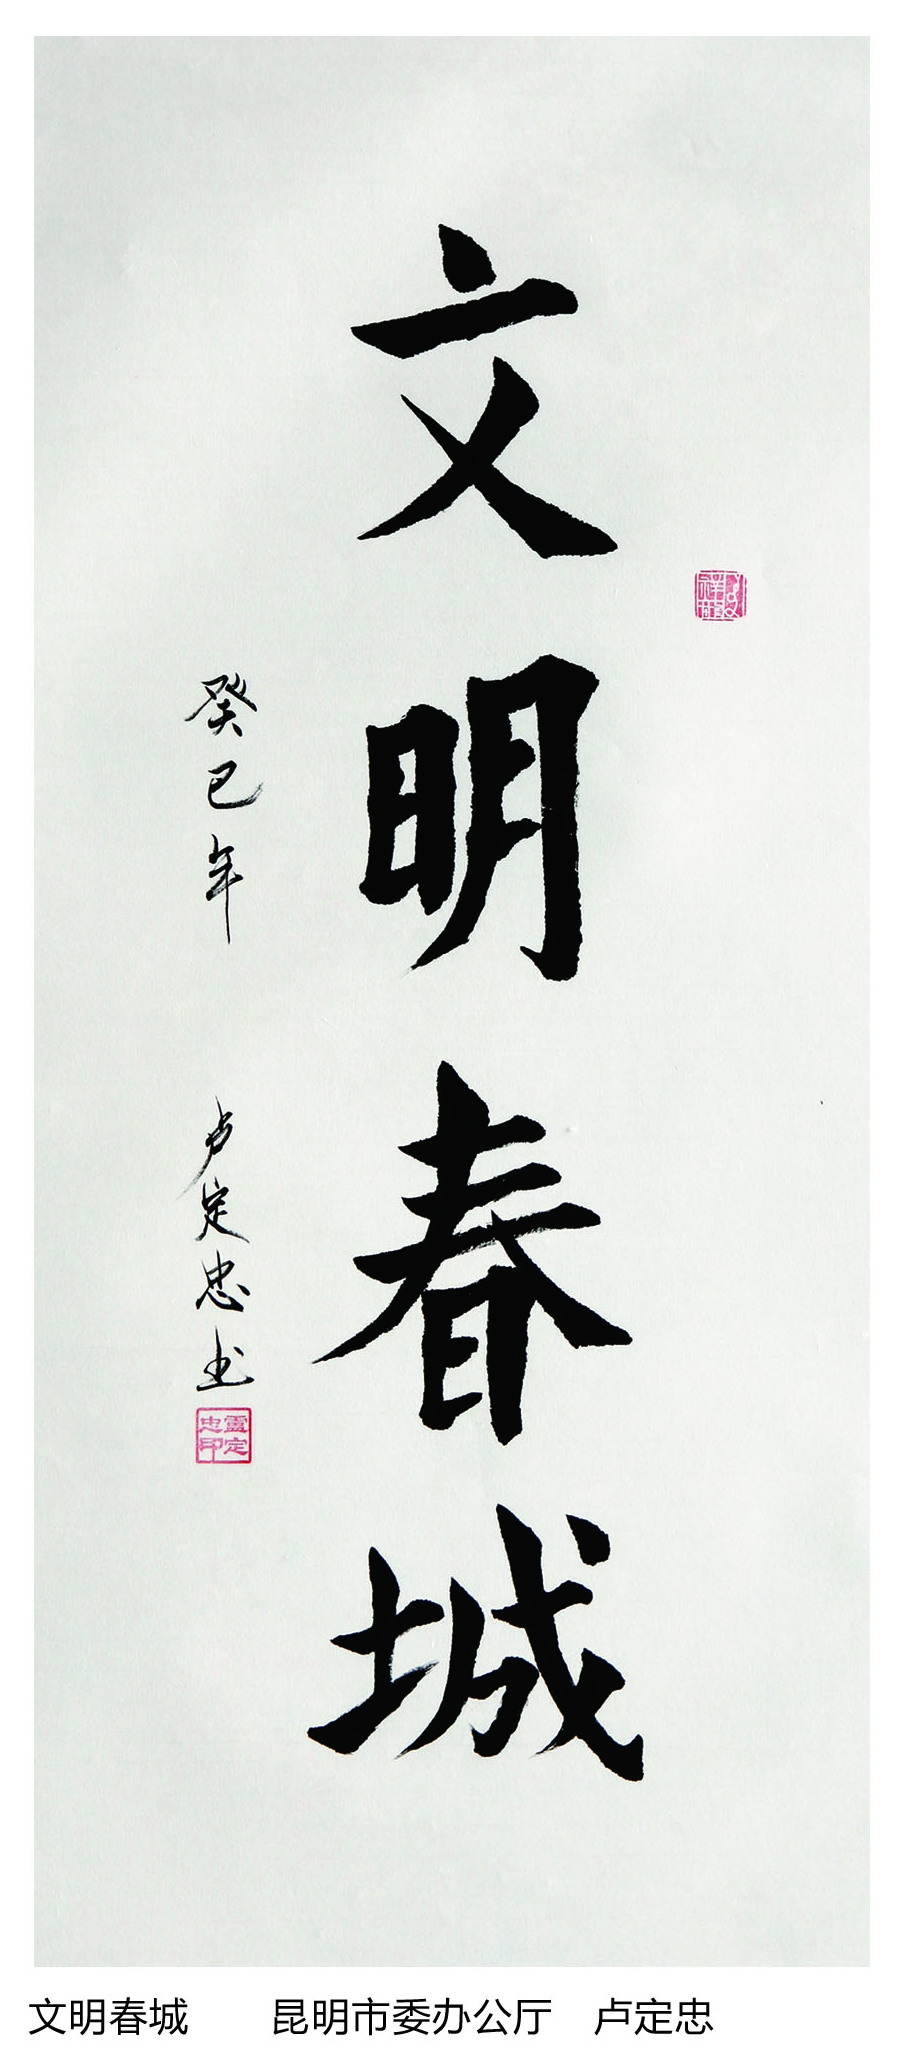 文明春城
癸巳年 卢定忠书
文明春城 昆明市委办公厅 卢定忠